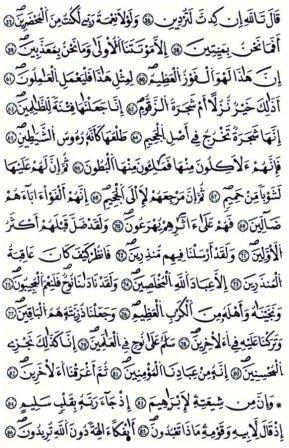 قَالَ تَٱللَّهِ إِن كِدتَّ لَتُرْدِينِ ٥٦ وَلَوْلَا نِعْمَةُ رَبِّى لَكُنتُ مِنَ ٱلْمُحْضَرِينَ ٥٧
أَفَمَا نَحْنُ بِمَيِّتِينَ ٥٨ إِلَّا مَوْتَتَنَا ٱلْأُولَىٰ وَمَا نَحْنُ بِمُعَذَّبِينَ ٥٩
إِنَّ هَٰذَا لَهُوَ ٱلْفَوْزُ ٱلْعَظِيمُ ٦٠ لِمِثْلِ هَٰذَا فَلْيَعْمَلِ ٱلْعَٰمِلُونَ ٦١
أَذَٰلِكَ خَيْرٌ نُّزُلًا أَمْ شَجَرَةُ ٱلزَّقُّومِ ٦٢ إِنَّا جَعَلْنَٰهَا فِتْنَةً لِّلظَّٰلِمِينَ ٦٣
إِنَّهَا شَجَرَةٌ تَخْرُجُ فِىٓ أَصْلِ ٱلْجَحِيمِ ٦٤ طَلْعُهَا كَأَنَّهُۥ رُءُوسُ ٱلشَّيَٰطِينِ ٦٥
فَإِنَّهُمْ لَءَاكِلُونَ مِنْهَا فَمَالِـُٔونَ مِنْهَا ٱلْبُطُونَ ٦٦ ثُمَّ إِنَّ لَهُمْ عَلَيْهَا
لَشَوْبًا مِّنْ حَمِيمٍ ٦٧ ثُمَّ إِنَّ مَرْجِعَهُمْ لَإِلَى ٱلْجَحِيمِ ٦٨ إِنَّهُمْ أَلْفَوْا۟ ءَابَآءَهُمْ
ضَآلِّينَ ٦٩ فَهُمْ عَلَىٰٓ ءَاثَٰرِهِمْ يُهْرَعُونَ ٧٠ وَلَقَدْ ضَلَّ قَبْلَهُمْ أَكْثَرُ
ٱلْأَوَّلِينَ ٧١ وَلَقَدْ أَرْسَلْنَا فِيهِم مُّنذِرِينَ ٧٢ فَٱنظُرْ كَيْفَ كَانَ عَٰقِبَةُ
ٱلْمُنذَرِينَ ٧٣ إِلَّا عِبَادَ ٱللَّهِ ٱلْمُخْلَصِينَ ٧٤ وَلَقَدْ نَادَىٰنَا نُوحٌ فَلَنِعْمَ ٱلْمُجِيبُونَ ٧٥
وَنَجَّيْنَٰهُ وَأَهْلَهُۥ مِنَ ٱلْكَرْبِ ٱلْعَظِيمِ ٧٦ وَجَعَلْنَا ذُرِّيَّتَهُۥ هُمُ ٱلْبَاقِينَ ٧٧
وَتَرَكْنَا عَلَيْهِ فِى ٱلْءَاخِرِينَ ٧٨ سَلَٰمٌ عَلَىٰ نُوحٍ فِى ٱلْعَٰلَمِينَ ٧٩ إِنَّا كَذَٰلِكَ نَجْزِى
ٱلْمُحْسِنِينَ ٨٠ إِنَّهُۥ مِنْ عِبَادِنَا ٱلْمُؤْمِنِينَ ٨١ ثُمَّ أَغْرَقْنَا ٱلْءَاخَرِينَ ٨٢
۞ وَإِنَّ مِن شِيعَتِهِۦ لَإِبْرَٰهِيمَ ٨٣ إِذْ جَآءَ رَبَّهُۥ بِقَلْبٍ سَلِيمٍ ٨٤
إِذْ قَالَ لِأَبِيهِ وَقَوْمِهِۦ مَاذَا تَعْبُدُونَ ٨٥ أَئِفْكًا ءَالِهَةً دُونَ ٱللَّهِ تُرِيدُونَ ٨٦